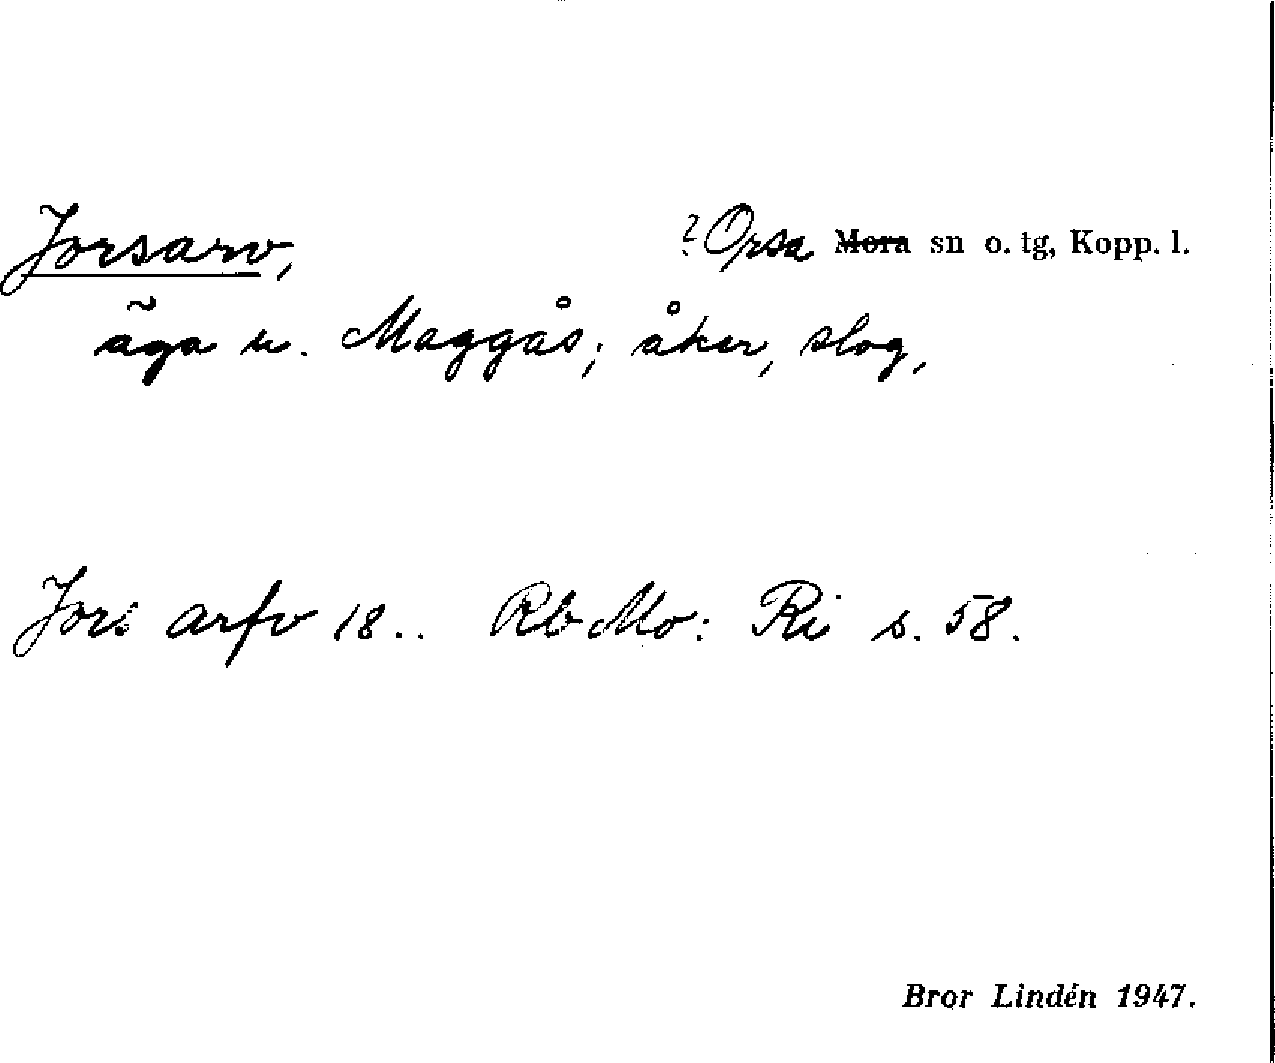 Jorsarv,
? Orsa Mora sn o. tg, Kopp. l.
äga u. Maggås; åker, slog,
Jors arfv 18.. Rb Mo: Ri s. 58.
Bror Lindén 1947.